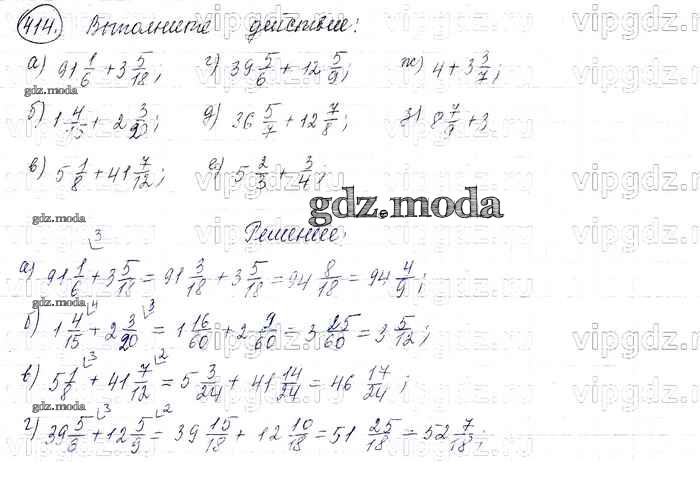 414. Выполните действие:
а) 91 1/6 + 3 5/18; г) 39 5/6 + 12 5/9; ж) 4 + 3 3/7;
gdz.moda
б) 1 4/15 + 2 3/20; д) 36 5/7 + 12 7/8; з) 8 7/9 + 3
gdz.moda
в) 5 1/8 + 41 7/12; е) 5 2/3 + 3/4;
gdz.moda
gdz.moda Решение:
а) 91 1/6 + 3 5/18 = 91 3/18 + 3 5/18 = 94 8/18 = 94 4/9;
gdz.moda
б) 1 4/15 + 2 3/20 = 1 16/60 + 2 9/60 = 3 25/60 = 3 5/12;
в) 5 1/8 + 41 7/12 = 5 3/24 + 41 14/24 = 46 17/24;
gdz.moda
г) 39 5/6 + 12 5/9 = 39 15/18 + 12 10/18 = 51 25/18 = 52 7/18;
vipgdz.ru